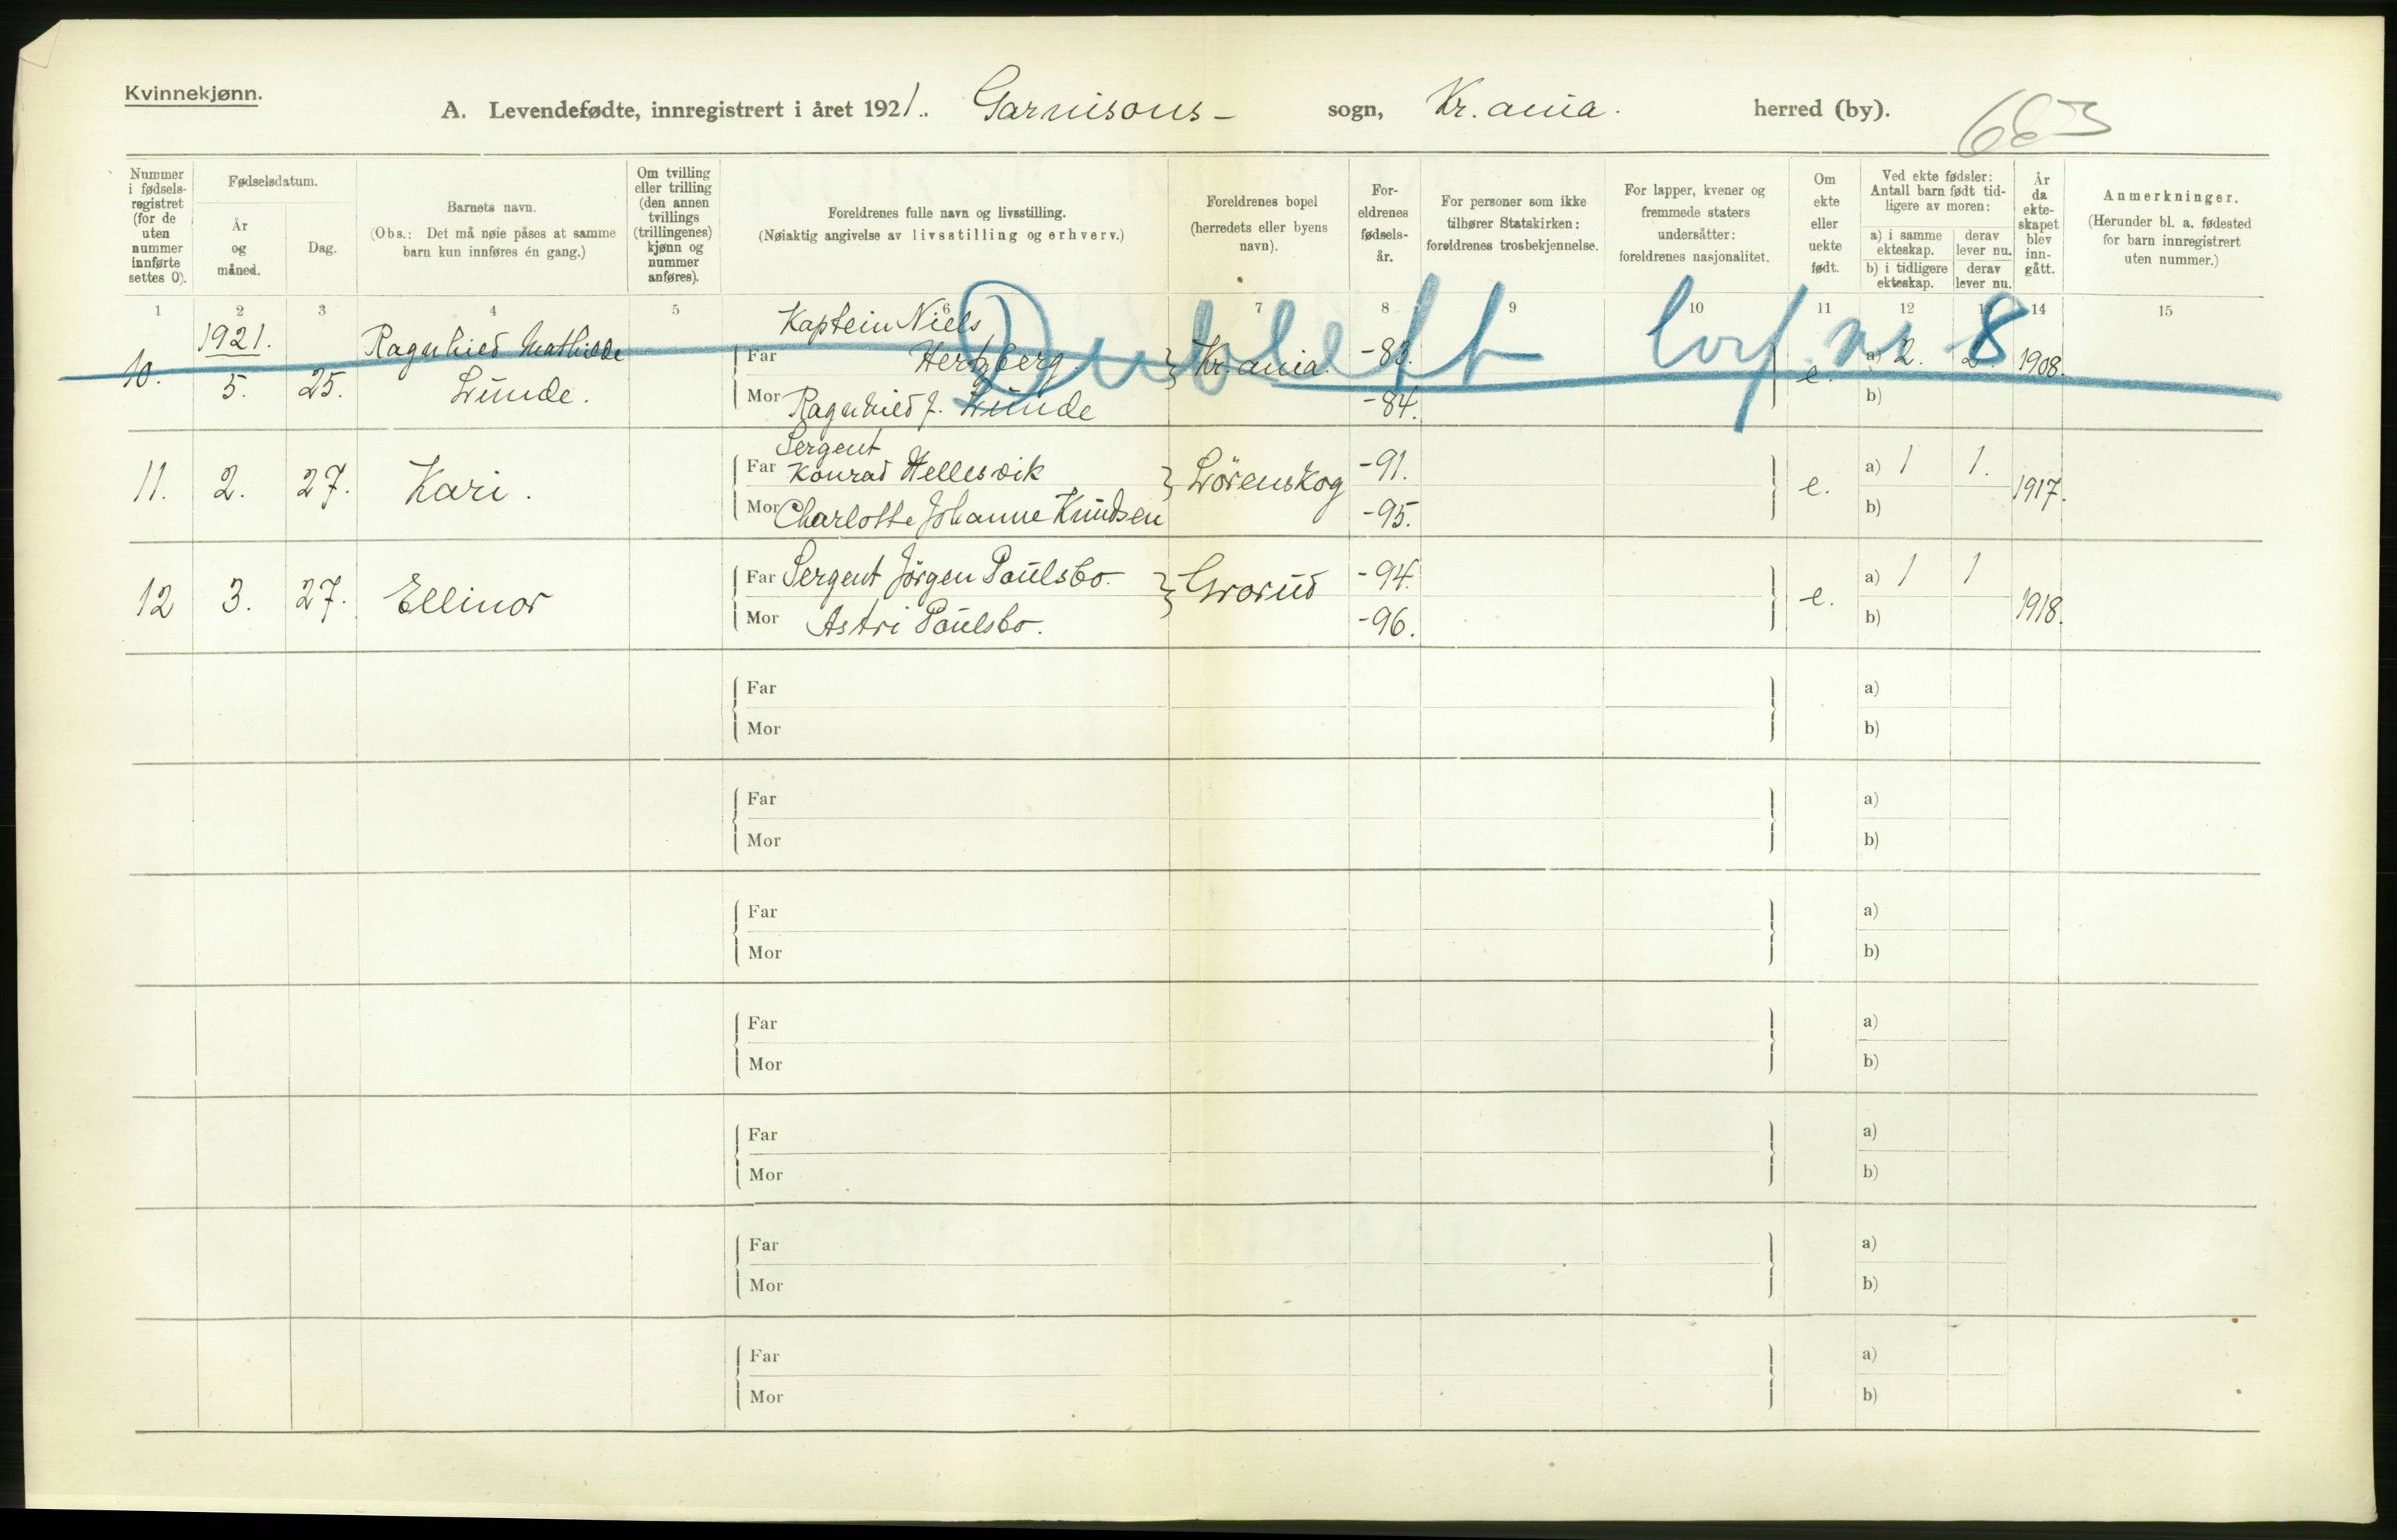 Kvinnekjønn.
A. Levendefødte, innregistrert i året 1921. Garnisons- sogn, Kr.ania. herred (by).
663
Nummer i fødsels-registret (for de uten nummer innførte settes 0).
Fødselsdatum.
År og måned.
Dag.
Barnets navn.
(Obs.: Det må nøie påses at samme barn kun innføres én gang.)
Om tvilling eller trilling (den annen tvillings (trillingenes) kjønn og nummer anføres).
Foreldrenes fulle navn og livsstilling.
(Nøiaktig angivelse av livsstilling og erhverv.)
Foreldrenes bopel (herredets eller byens navn).
For-eldrenes fødsels-år.
For personer som ikke tilhører Statskirken: foreldrenes trosbekjennelse.
For lapper, kvener og fremmede staters undersåtter: foreldrenes nasjonalitet.
Om ekte eller uekte født.
Ved ekte fødsler: Antall barn født tid-ligere av moren:
a) i samme ekteskap. derav lever nu.
b) i tidligere ekteskap. derav lever nu.
År da ekte-skapet blev inn-gått.
Anmerkninger.
(Herunder bl. a. fødested for barn innregistrert uten nummer.)
1 2 3 4 5 6 7 8 9 10 11 12 13 14 15
Dublett lofnr 8
1921.
10. 5. 25. Ragnhild Mathilde Lunde.
Kaptein Niels
Far Hertzberg. Kr.ania. -83. e. a) 2. 2. 1908.
Mor Ragnhild f. Lunde -84. b)
11. 2. 27. Kari.
Sergent
Far Konrad Hellesvik Lörenskog -91. e. a) 1 1. 1917.
Mor Charlotte Johanne Knudsen -95. b)
12 3. 27. Ellinor
Far Sergent Jörgen Paulsbo. Grorud -94. e. a) 1 1 1918.
Mor Astri Paulsbo. -96. b)
Far a)
Mor b)
Far a)
Mor b)
Far a)
Mor b)
Far a)
Mor b)
Far a)
Mor b)
Far a)
Mor b)
Far a)
Mor b)